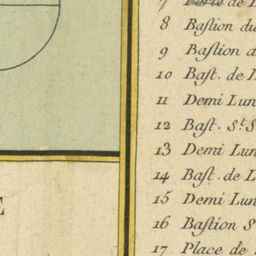 8 Bastion du
9 Bastion d
10 Bast. de L
11 Demi Lun
12 Bast. St. S
13 Demi Lun
14 Bast. de L
15 Demi Lun
16 Bastion S
17 Place de
E